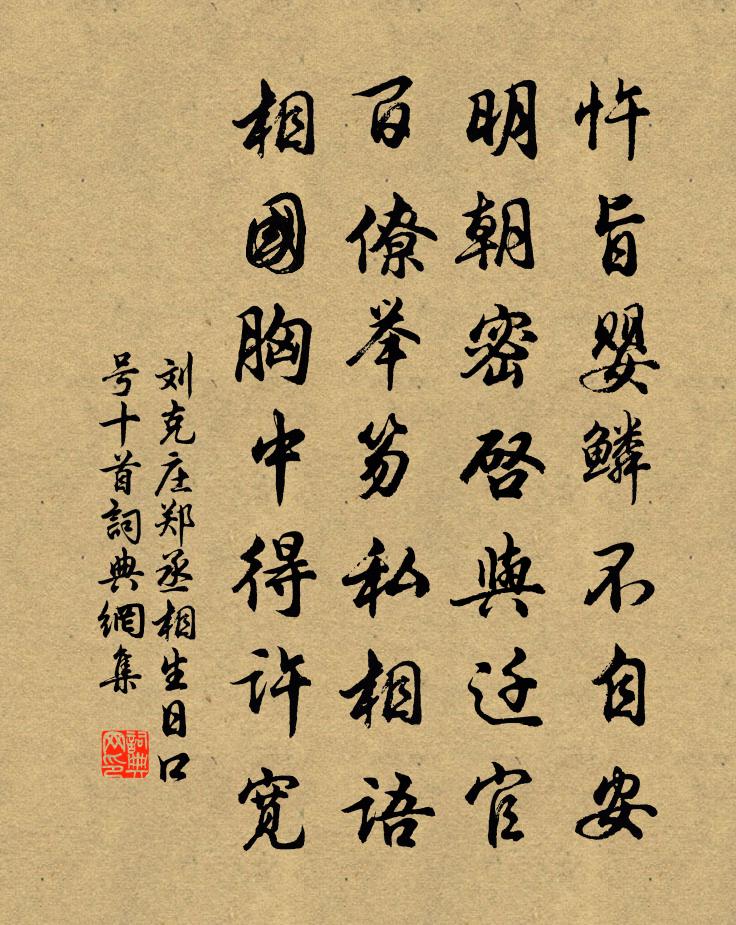 忤旨婴鳞不自安
明朝密启與迁官
百僚举笏私相語
相國胸中得許寬
刘克庄郑丞相生日口
号十首詞典網集
詞典网印